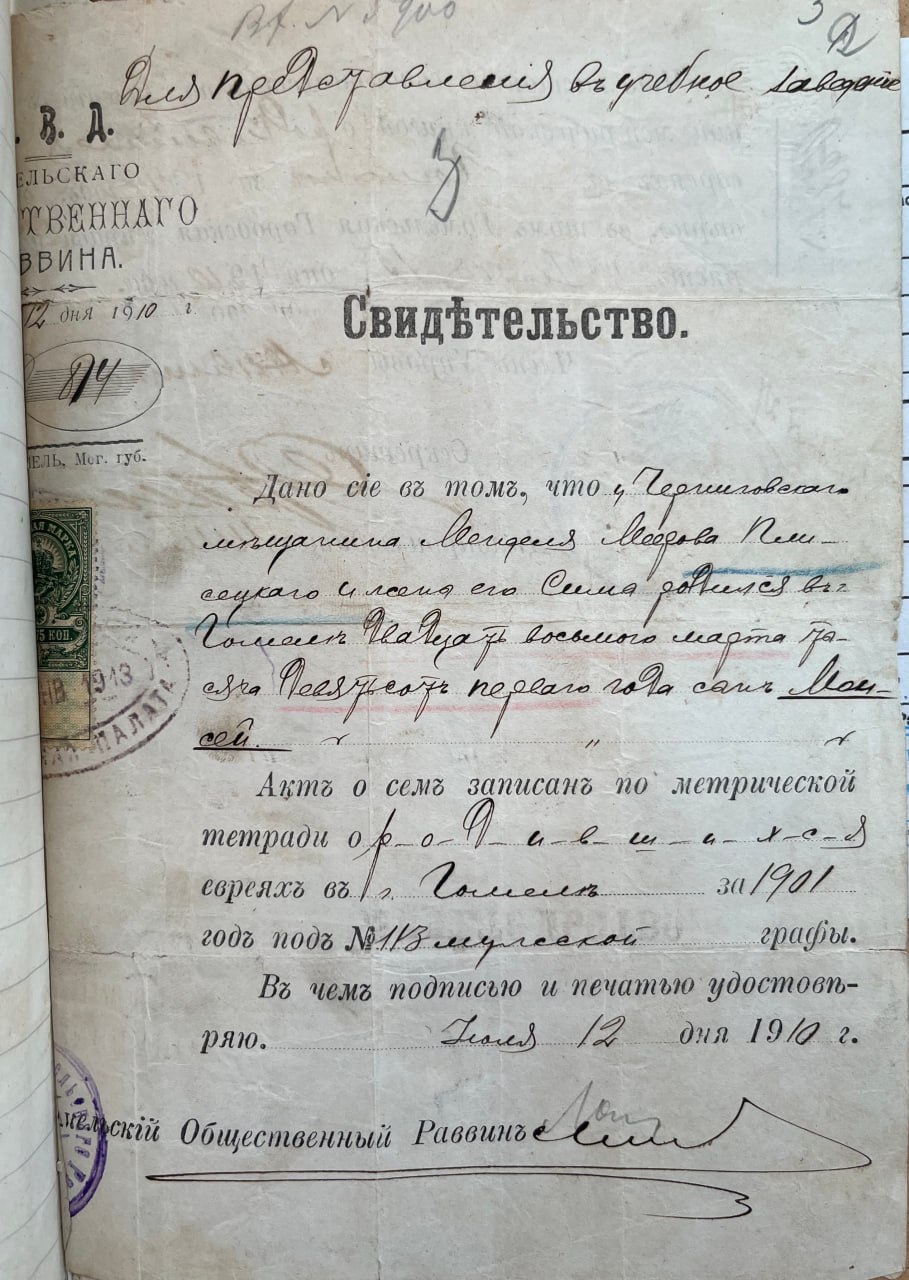 Для представленія въ учебное заведеніе
. В. Д.
ЕЛЬСКАГО
СТВЕННАГО
ВВИНА.
12 дня 1910 г.
814
МЕЛЬ, Мог. губ.
Свидѣтельство.
Дано сіе въ томъ, что у Черниговскаго
мѣщанина Менделя Меерова Пли-
сецкаго и жены его Симы родился въ
Гомелѣ двадцать восьмого марта ты-
сяча девятьсотъ перваго года сынъ Мои-
сей.
Актъ о семъ записанъ по метрической
тетради о р-о-д-и-в-ш-и-х-с-я
евреяхъ въ г. Гомелѣ за 1901
годъ подъ № 113 мужской графы.
Въ чемъ подписью и печатью удостовѣ-
ряю. Іюля 12 дня 1910 г.
мельскій Общественный Раввинъ
АЯ МАРКА
5 КОП.
1913
ПАЛАТА